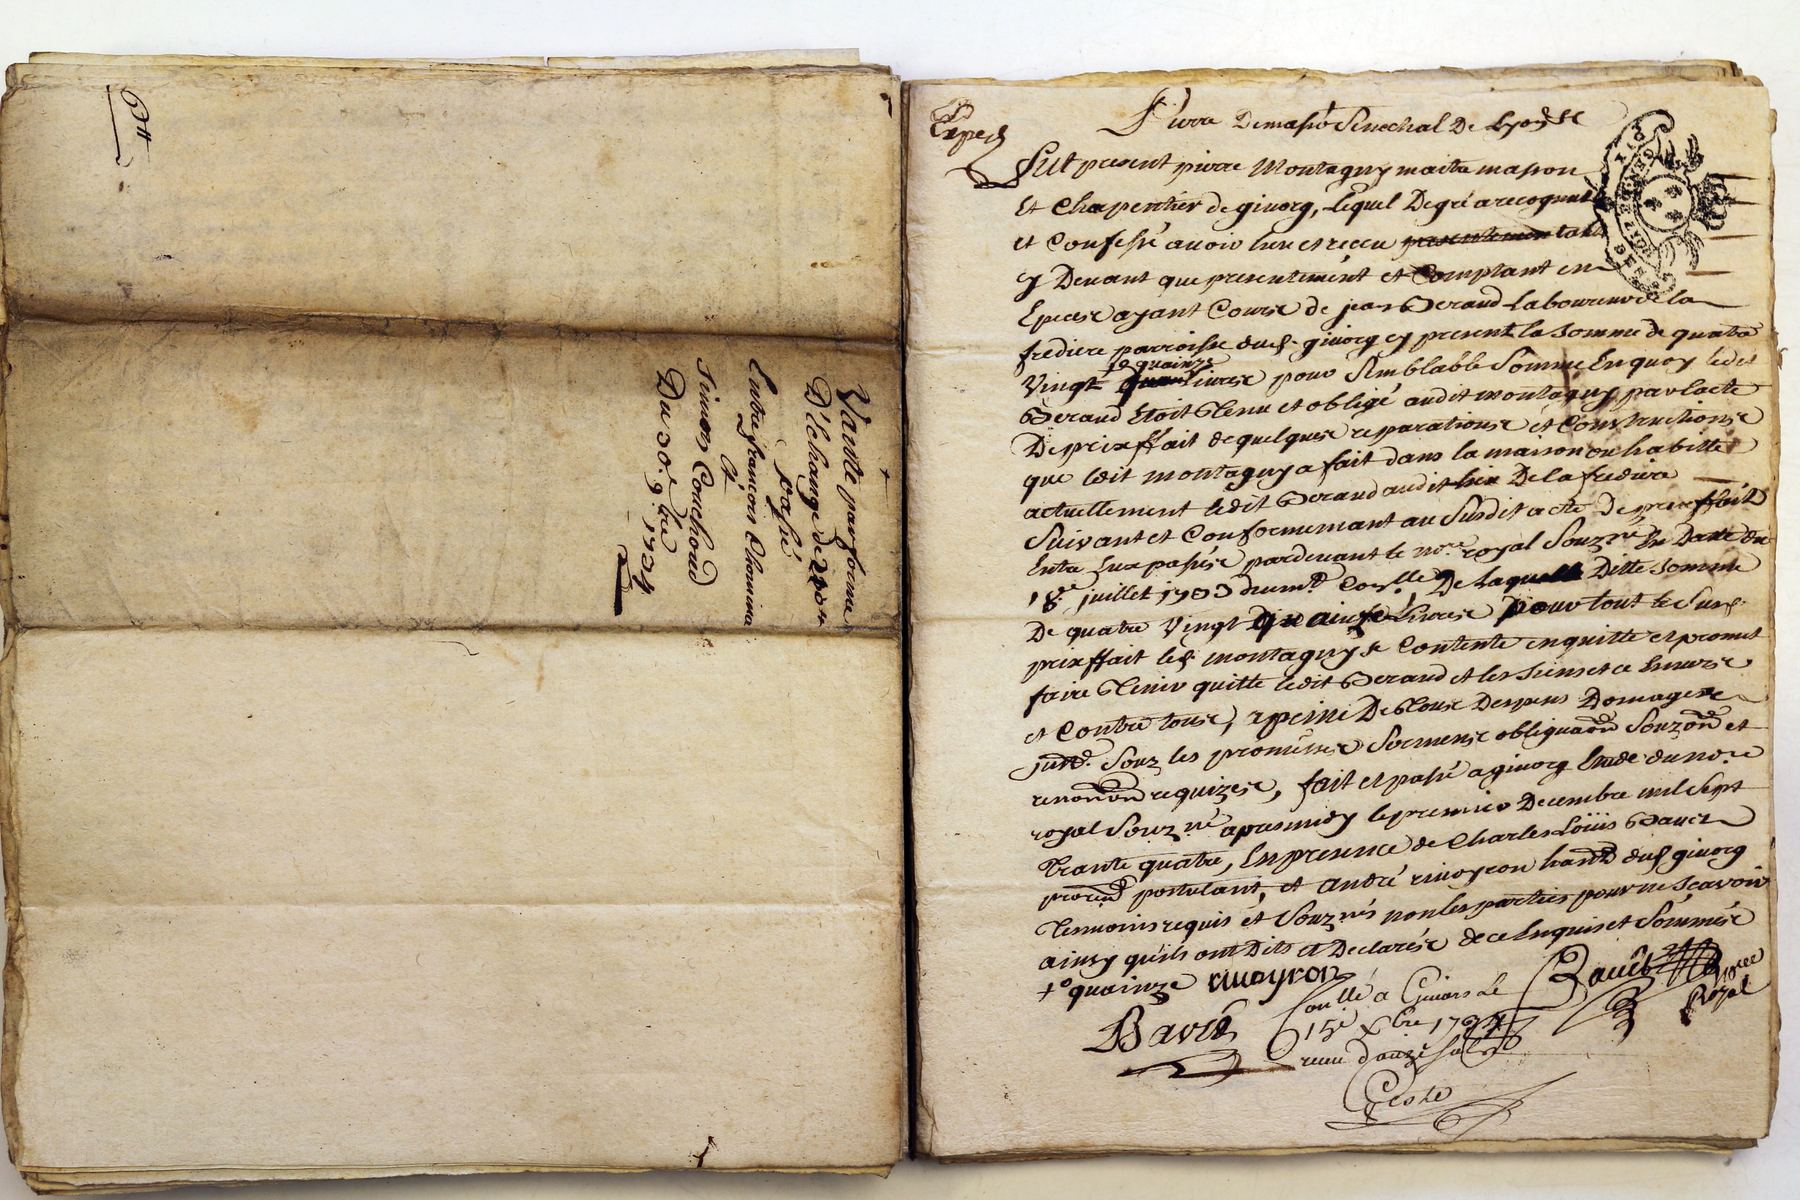 6ᵗᵗ
Vante par forme
D'Echange de
passé
Entre françois
&
Simon Couchoud
Du 30e 9bre 1734
Exped
Pierre Demasso Senechal de Lyon &c
Fut present pierre Montagny maitre masson
et Charpentier de givorg, lequel De gré a recognut
et Confessé avoir heu et receu presentement tant
cy Devant que presentement et Comptant en
Epeces ayant Cours de jean Beraud Laboureur de la
frediere parroisse dud. givorg cy present la Somme de quatre
Vingt quinze livres pour Semblable Somme En quoy ledit
Beraud Etoit Tenu et obligé audit montagny par lacte
De prixffait de quelques reparations et Constructions
que ledit montagny a fait dans la maison ou habitte
actuellement ledit Beraud audit lieu De la frediere
Suivant et Conformement au Susdit acte De prixffait
Entre Eux passés pardevant le nore royal Souzné En Datte du
18e juillet 1733 De Laquelle Ditte Somme
De quatre Vingt quainze Livres pour tout le Susd.
prixffait led. montagny se Contente en quitte et promet
faire Tenir quitte ledit Beraud et les siens et ce Envers
et Contre tous, a peine De Tous Depens Domages
Souz les promesses Sermens obligaons Souzons et
renonons requizes, fait et passé a givorg Etude du nore
royal Souzné apres midy le premier Decembre mil Sept
Trante quatre, En presence de Charles Loüis Bauet
postulant, et andré rivoyron hand dud. givorg
Temoins requis et Souznés non les parties pour ne Scavoir
ainsy qu'ils ont Dits et Declarés de ce Enquis et Sommés
+° quainze rivoyron
Bauet nore Royal
Bavet
Conllé a Givors Le
15e Xbre 1734
receu douze sols